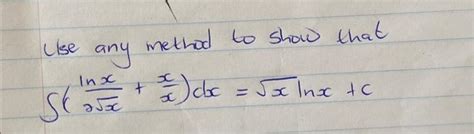 Use any method to show that
∫( ln x / 2√x + x / x ) dx = √x ln x + c